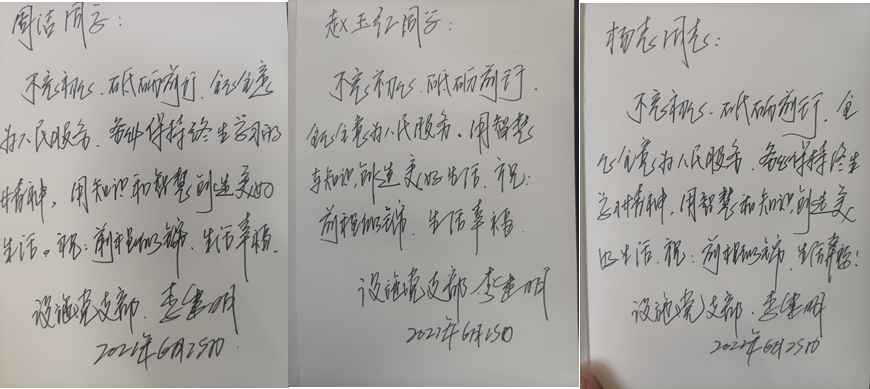 周洁同学：
不忘初心、砥砺前行、全心全意
为人民服务、务必保持终生学习的
精神，用知识和智慧创造美好
生活。祝：前程似锦、生活幸福.
设施党支部、李建明
2022年6月25日
赵玉红同学：
不忘初心、砥砺前行、
全心全意为人民服务。用智慧
与知识创造美好生活、祝：
前程似锦、生活幸福.
设施党支部、李建明
2022年6月25日
杨志同志：
不忘初心、砥砺前行、全
心全意为人民服务、务必保持终生
学习精神、用智慧和知识创造美
好生活、祝：前程似锦、生活幸福！
设施党支部、李建明
2022年6月25日